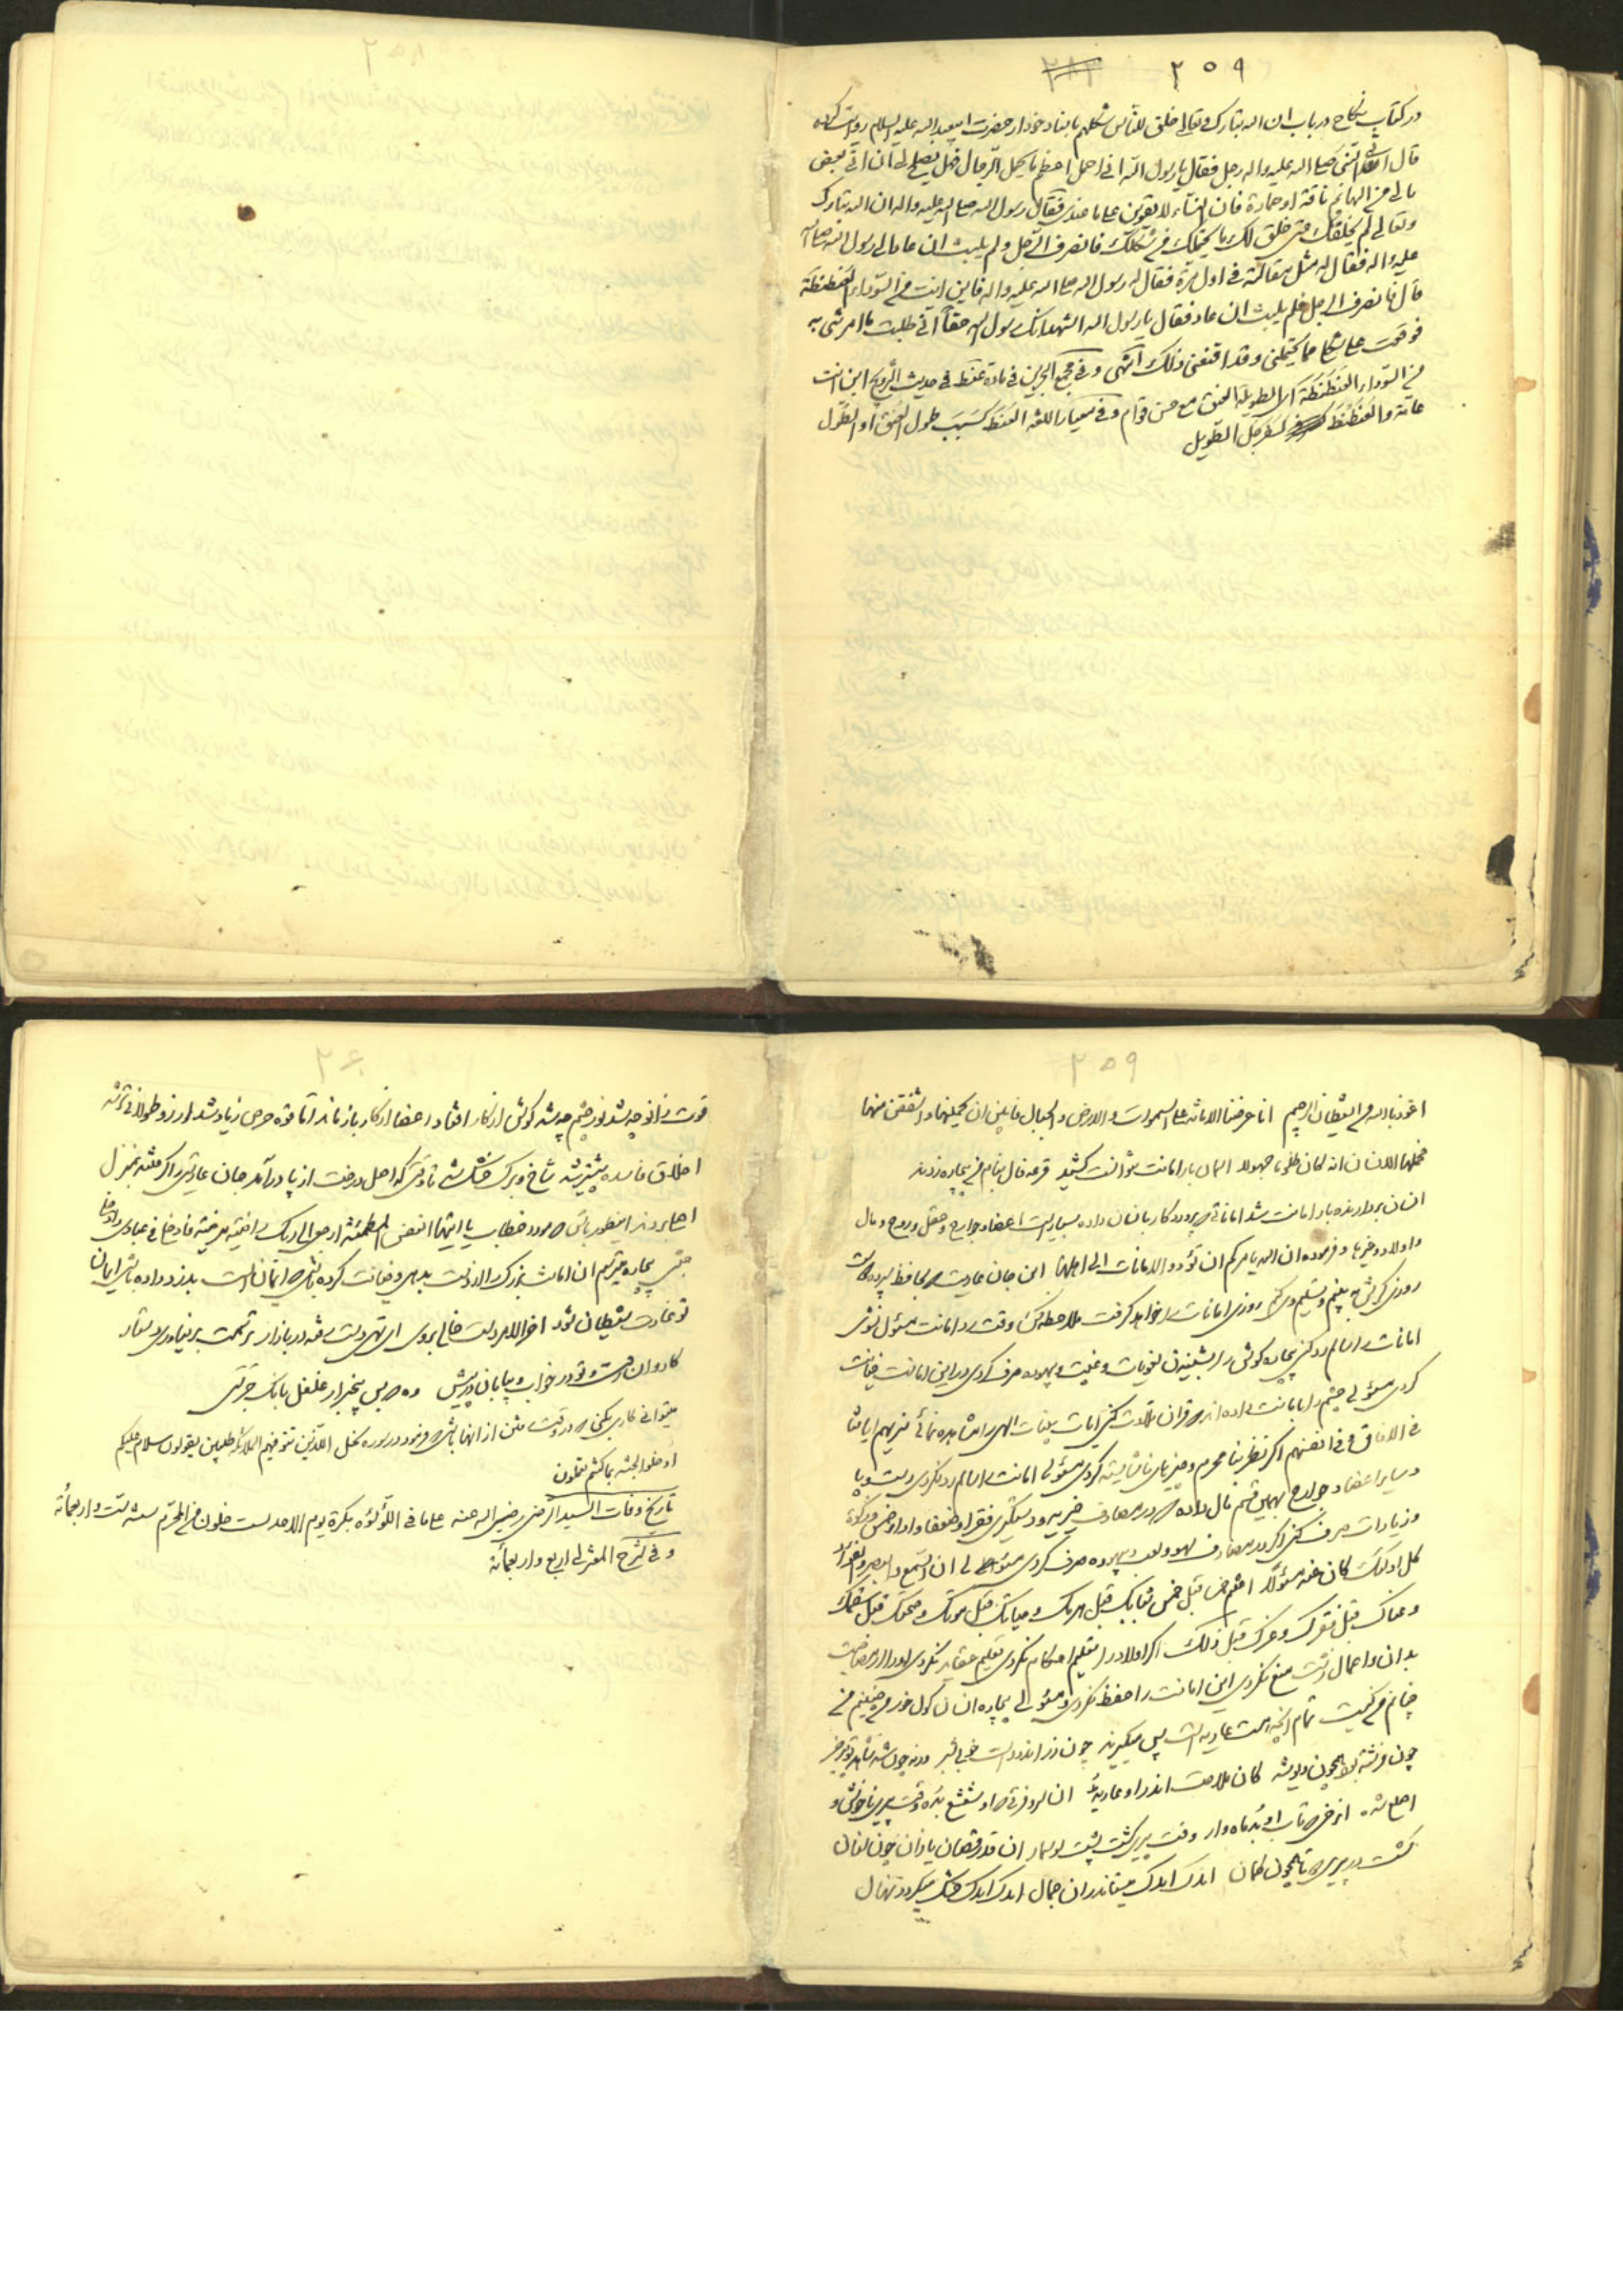 ۲۵۹
در کتاب نکاح در باب ان الله تبارک و تعالی خلق للناس شکلهم باسناد خود از حضرت ابیعبدالله علیه السلام روایت کرده
قال اتی النبی صلی الله علیه واله رجل فقال یا رسول الله انی احمل اعظم ما یحمل الرجال فهل یصلح لی ان اتی بعض
مالی من البهائم ناقة او حمارة فان النساء لا یقوین علی ما عندی فقال رسول الله صلی الله علیه واله ان الله تبارک
وتعالی لم یخلقک حتی خلق لک ما یحتملک من شکلک فانصرف الرجل ولم یلبث ان عاد الی رسول الله صلی الله
علیه واله فقال له مثل مقالته فی اول مرة فقال له رسول الله صلی الله علیه واله فاین انت من السوداء العنطنطة
قال فانصرف الرجل فلم یلبث ان عاد فقال یا رسول الله اشهد انک رسول الله حقاً انی طلبت ما امرتنی به
فوقعت علی شکلی مما یحتملنی وقد اقنعنی ذلک انتهی و فی مجمع البحرین فی مادة عنط فی حدیث التزویج این انت
من السوداء العنطنطة ای الطویلة العنق مع حسن قوام و فی معیار اللغه العنط کسبب طول العنق او الطول
عامة والعنطنط کسفرجل الطویل
۲۵۹
اعوذ بالله من الشیطان الرجیم انا عرضنا الامانة علی السموات والارض والجبال فابین ان یحملنها واشفقن منها
فحملها الانسان انه کان ظلوما جهولا اسمان بار امانت نتوانست کشید قرعه فال بنام من بیچاره زدند
انسان بردارنده بار امانت شد اماناتی که پروردگار بانسان داده بسیار است اعضا و جوارح و عقل و روح و مال
و اولاد و غیرها و فرموده ان الله یامرکم ان تؤدوا الامانات الی اهلها این جان عاریت که بحافظ سپرده دوست
روزی رخش ببینم و تسلیم وی کنم روزی امانات را خواهد گرفت ملاحظه کن وقت رد امانت مسئول نشوی
امانت را سالم رد کنی بیچاره گوش را بشنیدن لغویات و غیبت و بیهوده صرف کردی در این امانت خیانت
کردی مسئولی چشم را بامانت داده اند که قران تلاوت کنی ایات بینات الهی را مشاهده نمائی سنریهم ایاتنا
فی الافاق و فی انفسهم اگر نظر بنامحرم و چیزهای ناشایسته کردی مسئولی امانت را سالم رد نکردی دست و پا
و سایر اعضا و جوارح بهمین قسم مال داده که در مصارف خیریه و دستگیری فقرا و ضعفا و ادا و خمس و زکوة
و زیارات صرف کنی اگر در مصارف لهو و لعب و بیهوده صرف کردی مسئولی ان السمع والبصر والفؤاد
کل اولئک کان عنه مسئولا اغتنم خمس قبل خمس شبابک قبل هرمک وحیاتک قبل موتک وصحتک قبل سقمک
وغناک قبل فقرک و عزک قبل ذلک اگر اولاد را تعلیم احکام نکردی تعلیم عقاید نکردی او را از مصاحبت
بدان و اعمال زشت منع نکردی این امانت را حفظ نکردی و مسئولی بیچاره انسان گول خور
تمام انچه هست عاریه است پس میگیرند
چون فرشته بود همچون دیو شد کان ملاحت اندر او عاریه بد
اصلع شده
گشت در پیری اندک اندک میستاند ان جمال اندک اندک خشک میگردد نهال
۲۶۰
قوت زانو چه شد نور چشم چه شد گوش از کار افتاد اعضا از کار باز ماند اما قوه حرص زیاد شد ارزو طولانی تر شد
اخلاق فاسده بیشتر شد شاخ و برگ خشک شد تا وقتی که اصل درخت از پا درآمد جان عاریتی را گرفته بمنزل
اصلی بردند اینطور باش که مورد خطاب یا ایتها النفس المطمئنة ارجعی الی ربک راضیة مرضیة فادخلی فی عبادی وادخلی
جنتی بیچاره میترسم ان امانت بزرگ را از دست بدهی و خیانت کرده باشی که ایمانست بدزد داده باشی ایمان
تو غارت شیطان شود اخر الامر دست خالی بروی ای تهی دست رفته در بازار ترسمت بر نیاوری دستار
کاروان رفت و تو در خواب و بیابان در پیش وه که بس بیخبر از غلغل بانک جرسی
میتوانی کاری بکنی که در وقت رفتن از انها باشی که فرمود در سوره نحل الذین تتوفیهم الملائکة طیبین یقولون سلام علیکم
ادخلوا الجنة بما کنتم تعملون
تاریخ وفات السید الرضی رضی الله عنه علی ما فی اللؤلؤه بکرة یوم الاحد لست خلون من المحرم سنه ست واربعمأة
و فی شرح المعتزلی اربع واربعمأة